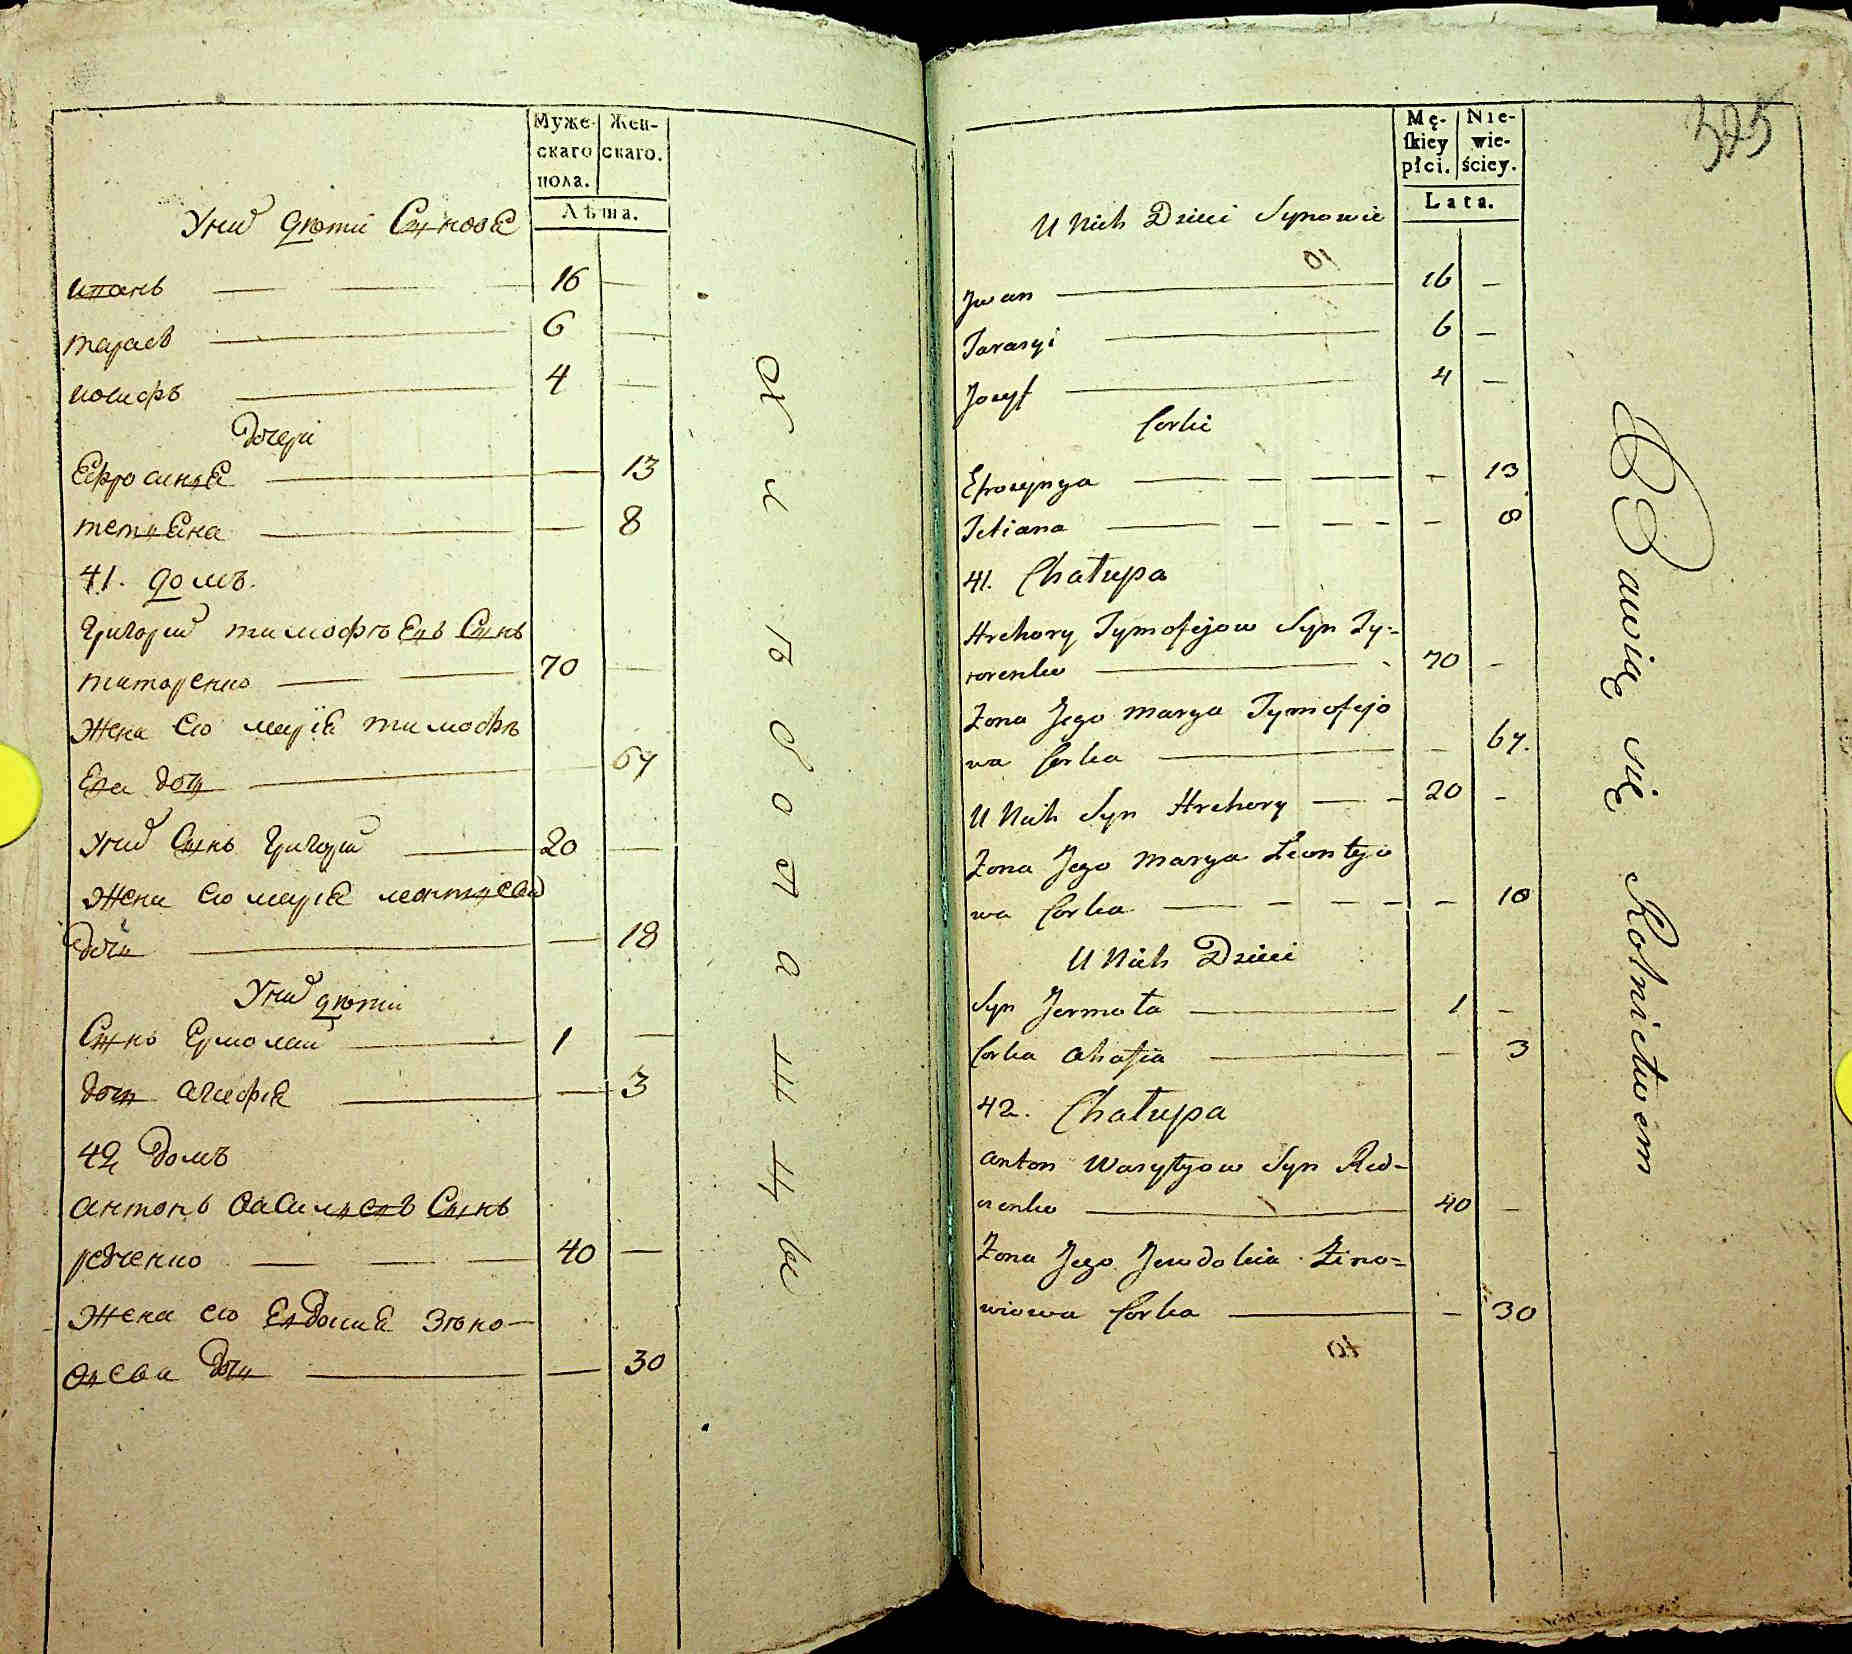 Муже-
скаго
пола.
Жен-
скаго.
Лѣта.
У них дѣти Сынове
иванъ 16
тарасъ 6
иосифъ 4
Дочери
Ефросиния 13
тетиана 8
41. домъ.
Григорий тимофѣевъ Сынъ
титаренко 70
Жена его мария тимофѣ
ева дочь 67
У них Сынъ Григорий 20
Жена его мария леонтиева
дочь 18
У них дѣти
Сынъ Ермолай 1
дочь агафия 3
42 домъ
антонъ василиевъ Сынъ
редченко 40
Жена его Евдокия Зѣно-
виева дочь 30
Хлѣбопашцы
325
Mę-
skiey
płci.
Nie-
wie-
ściey.
Lata.
U Nich Dzieci Synowie
Jwan 16 -
Tarasyi 6 -
Jozyf 4 -
Corki
Efrozynya - 13
Tetiana - 8
41. Chałupa
Hrehory Tymofejow Syn Ty-
torenko 70 -
Żona Jego Marya Tymofejo
wa Corka - 67.
U Nich Syn Hrehory 20 -
Żona Jego Marya Leontyjo
wa Corka - 18
U Nich Dzieci
Syn Jermoła 1 -
Corka Ahafia - 3
42. Chałupa
Anton Wasylyow Syn Red-
czenko 40 -
Żona Jego Jewdokia Zino-
wiowa Corka - 30
Bawią się Rolnictwem